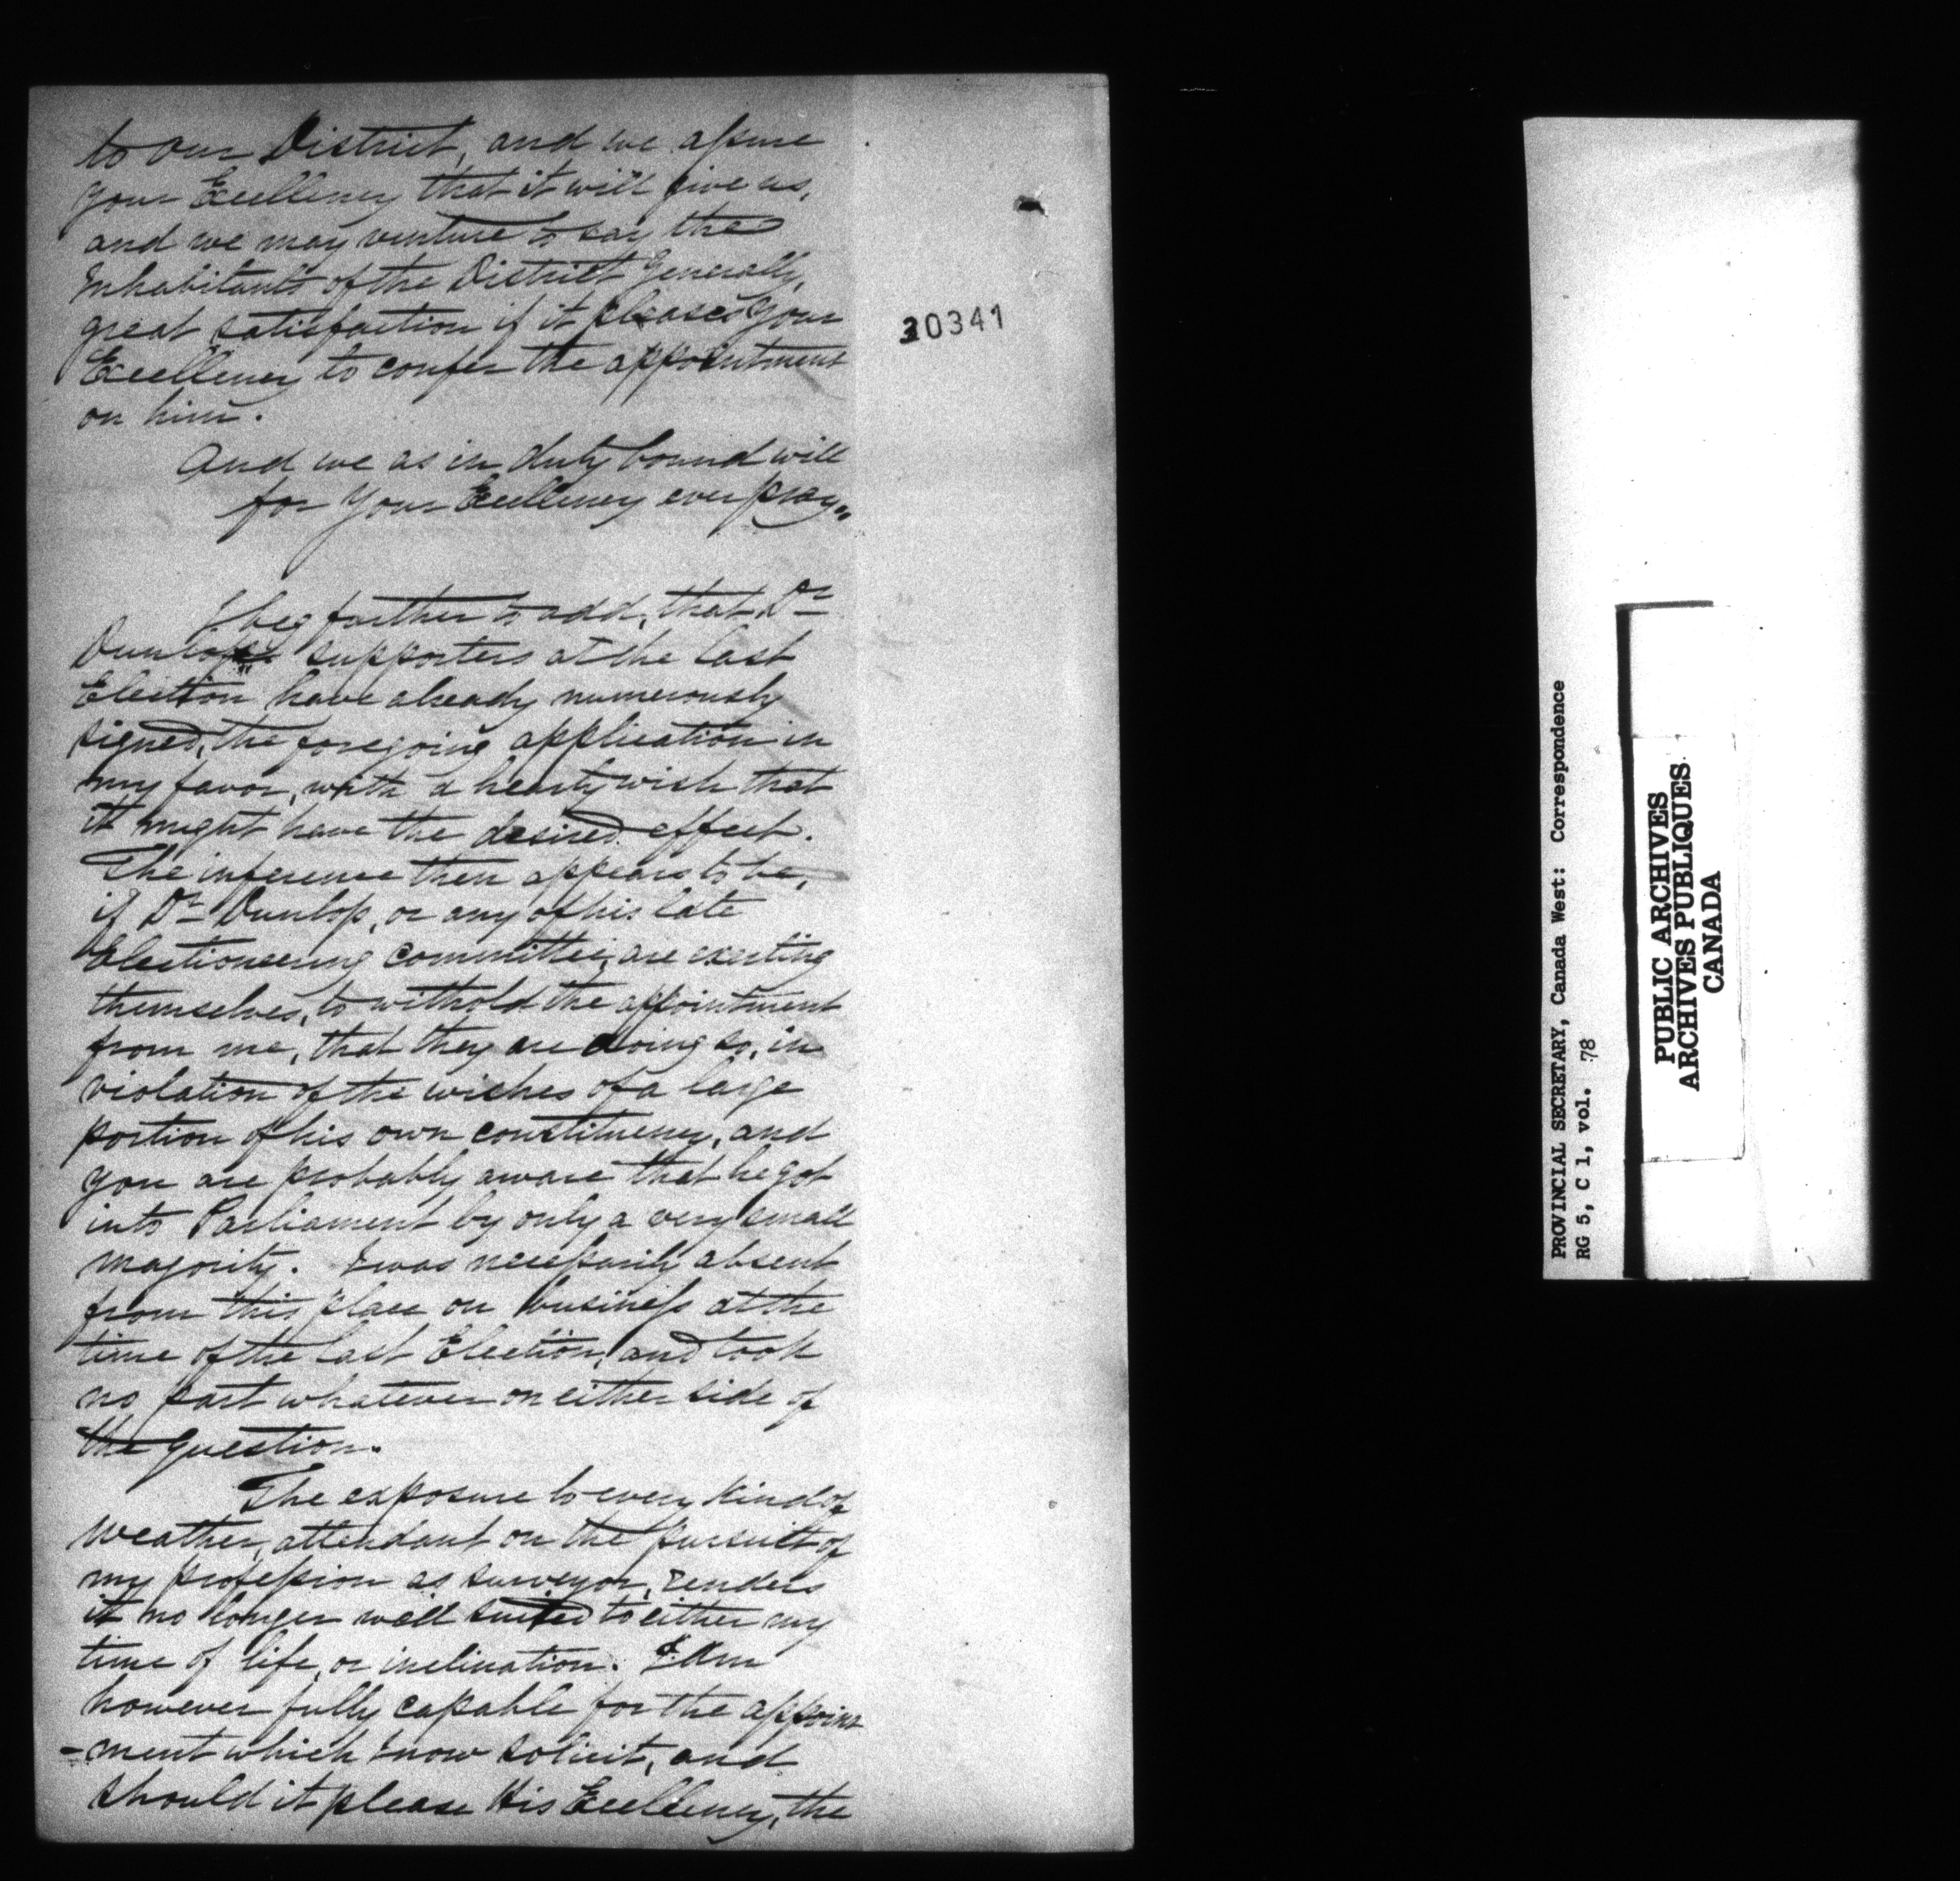 to our District, and we assure
your Excellency that it will give us,
and we may venture to say the
Inhabitants of the District generally,
great satisfaction if it pleases Your
Excellency to confer the appointment
on him.
And we as in duty bound will
for Your Excellency ever pray.
I beg further to add, that Dr
Dunlop's supporters at the last
Election have already numerously
signed, the foregoing application in
my favor, with a hearty wish that
it might have the desired effect.
The inference then appears to be,
if Dr Dunlop, or any of his late
Electioneering committee, are exerting
themselves, to withold the appointment
from me, that they are doing so, in
violation of the wishes of a large
portion of his own constituency, and
you are probably aware that he got
into Parliament by only a very small
majority. I was necessarily absent
from this place on business at the
time of the last Election, and took
no part whatever on either side of
the question.
The exposure to every kind of
weather, attendant on the pursuit of
my profession as surveyor, renders
it no longer well suited to either my
time of life, or inclination. I am
however fully capable for the appoint
-ment which I now solicit, and
should it please His Excellency, the
30341
PROVINCIAL SECRETARY, Canada West: Correspondence
RG 5, C 1, vol. 78
PUBLIC ARCHIVES
ARCHIVES PUBLIQUES
CANADA